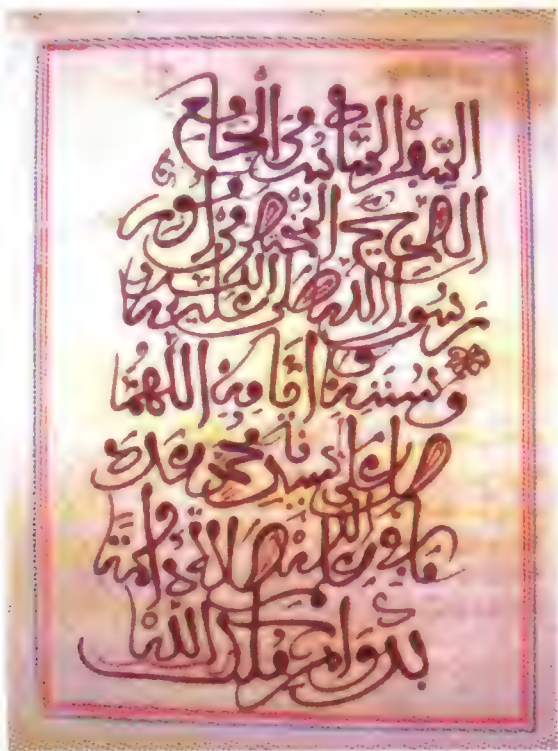 السفر الثاني من الجامع
الصحيح المختصر من أمور
رسول الله صلى الله عليه وسلم
وسننه وأيامه اللهم
صل على سيدنا محمد عدد
ما في علم الله صلاة دائمة
بدوام ملك الله